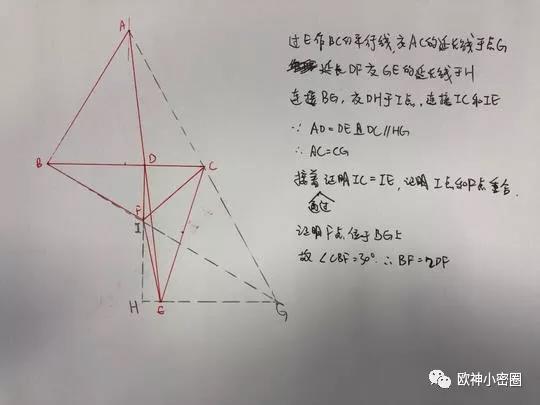 A
B
D
C
F
I
H
E
G
过E作BC的平行线,交AC的延长线于点G
延长DF交GE的延长线于H
连接BG,交DH于I点,连接IC和IE
∵ AD=DE且DC∥HG
∴ AC=CG
接着证明IC=IE,证明I点和F点重合.
通过
证明F点位于BG上
故∠CBF=30° ∴BF=2DF
欧神小密圈